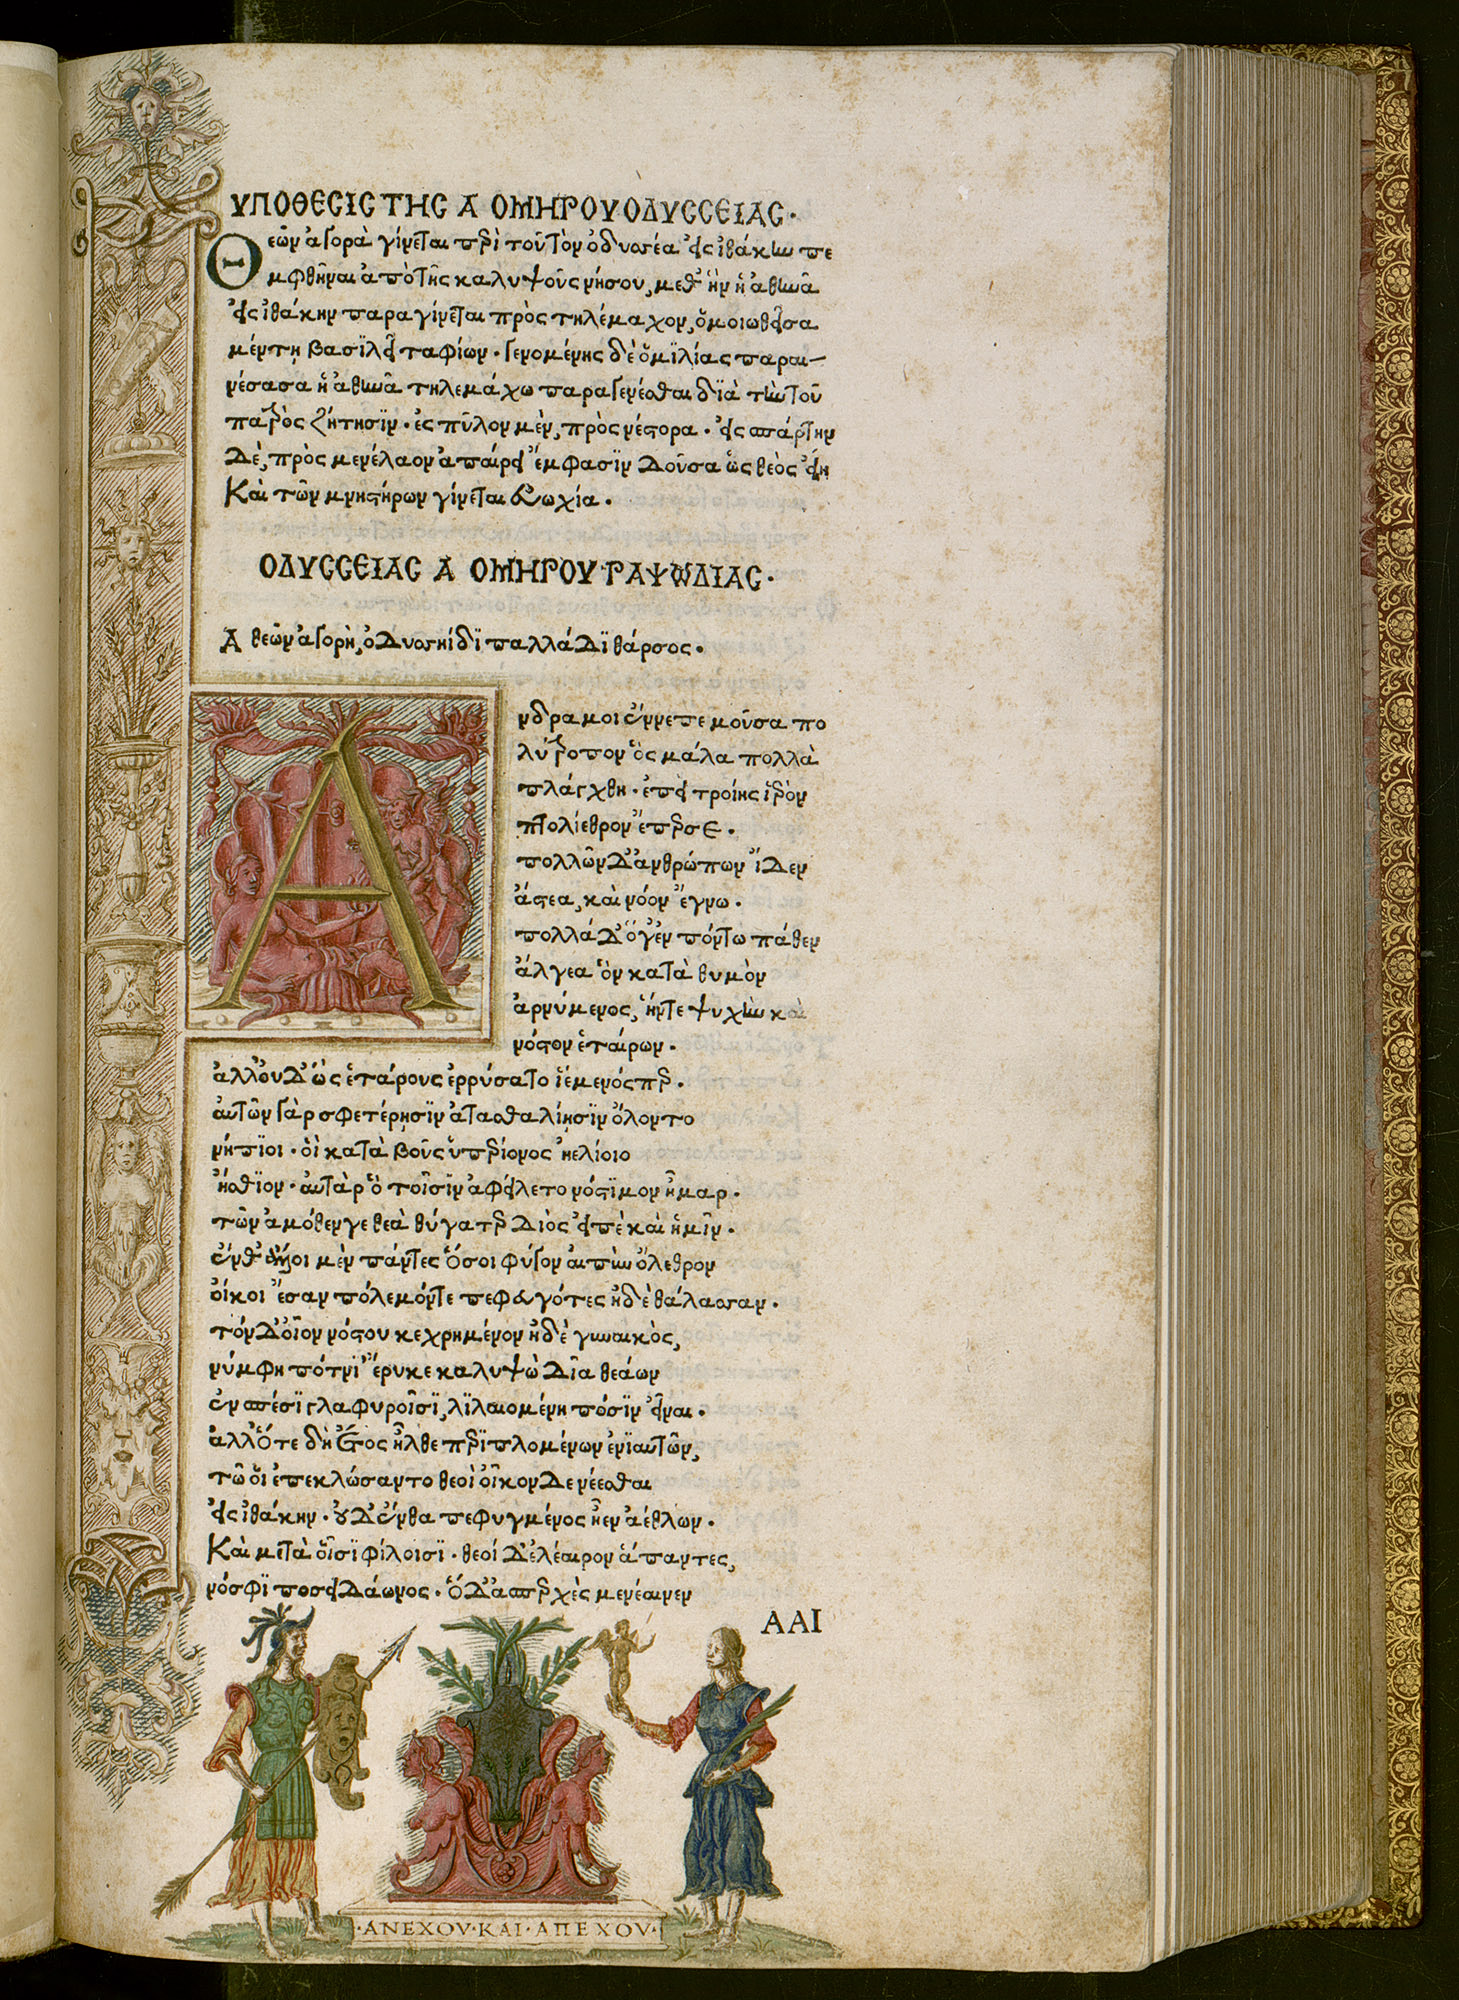 ΥΠΟΘΕCΙC ΤΗC Α ΟΜΗΡΟΥ ΟΔΥCCΕΙΑC.
Θεῶν ἀγορὰ γίνεται πρὶ τοῦ τὸν ὀδυσσέα εἰς ἰθάκην πε
μφθῆναι ἀπὸ τῆς καλυψοῦς νήσου, μεθ' ἣν ἡ ἀθηνᾶ
εἰς ἰθάκην παραγίνεται πρὸς τηλέμαχον, ὁμοιωθεῖσα
μέντῃ βασιλεῖ ταφίων. γενομένης δὲ ὁμϊλίας παραι-
νέσασα ἡ ἀθηνᾶ τηλεμάχω παραγενέσθαι δϊὰ τὴν τοῦ
πατρὸς ζήτησϊν. ἐς πῦλον μὲν, πρὸς νέστορα. εἰς σπάρτην
δὲ, πρὸς μενέλαον ἀπαίρει ἔμφασϊν δοῦσα ὡς θεὸς εἴη
Καὶ τῶν μνηστήρων γίνεται εὐωχία.
ΟΔΥCCΕΙΑC Α ΟΜΗΡΟΥ ΡΑΨΩΔΙΑC.
Α θεῶν ἀγορὴ, ὀδυσσηίδϊ παλλάδϊ θάρσος.
Ανδρα μοι ἔννεπε μοῦσα πο
λύτροπον ὃς μάλα πολλὰ
πλάγχθη. ἐπεὶ τροίης ἱερὸν
πτολίεθρον ἔπερσε.
πολλῶν δ' ἀνθρώπων ἴδεν
ἄστεα, καὶ νόον ἔγνω.
πολλά δ' ὅγ' ἐν πόντω πάθεν
ἄλγεα ὃν κατὰ θυμὸν
ἀρνύμενος, ἥντε ψυχὴν καὶ
νόστον ἑταίρων.
ἀλλ' οὐδ' ὣς ἑτάρους ἐρρύσατο ἱέμενός περ.
αὐτῶν γὰρ σφετέρησϊν ἀτασθαλίησϊν ὄλοντο
νήπϊοι. ὃι κατὰ βοῦς ὑπερίονος ἠελίοιο
ἤσθϊον. αὐτὰρ ὃ τοῖσϊν ἀφείλετο νόστϊμον ἦμαρ.
τῶν ἀμόθενγε θεὰ θύγατερ Διὸς εἰπὲ καὶ ἡμῖν.
ἔνθ' ἄλλοι μὲν πάντες ὅσοι φύγον αἰπὺν ὄλεθρον
οἴκοι ἔσαν πόλεμόντε πεφευγότες ἠδὲ θάλασσαν.
τόνδ' οἶον νόστου κεχρημένον ἠδὲ γυναικὸς,
νύμφη πότνϊ' ἔρυκε καλυψὼ Δῖα θεάων
ἐν σπέσϊ γλαφυροῖσϊ, λϊλαιομένη πόσϊν εἶναι.
ἀλλ' ὅτε δὴ ἔτος ἦλθε περϊπλομένων ἐνϊαυτῶν,
τῶ ὁι ἐπεκλώσαντο θεοὶ οἶκον δε νέεσθαι
εἰς ἰθάκην. οὐδ' ἔνθα πεφυγμένος ἦεν ἀέθλων.
Καὶ μετὰ οἷσϊ φίλοισϊ. θεοί δ' ἐλέαιρον ἅπαντες,
νόσφϊ ποσειδάωνος. ὃ δ' ἀσπερχὲς μενέαινεν
ΑΑΙ
·ΑΝΕΧΟΥ·ΚΑΙ·ΑΠΕΧΟΥ·